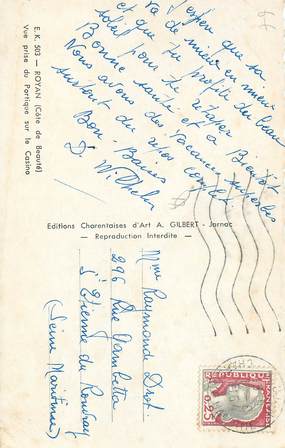 E.K. 503 — ROYAN (Côte de Beauté)
Vue prise du Portique sur le Casino
J'espère que sa
va de mieu en mieux
et que tu profite du beau
soleil pour te rétablir
Bonne santé et a Bientôt
Nous avons des vacances superbes
surtout du repos complet
Bon Baiser
D. Wilhelm
Editions Charentaises d'Art A. GILBERT - Jarnac
— Reproduction Interdite —
Mme Raymond
296 Rue Gambetta
St Etienne du Rouvray
(Seine Maritime)
REPUBLIQUE FRANÇAISE
0,25